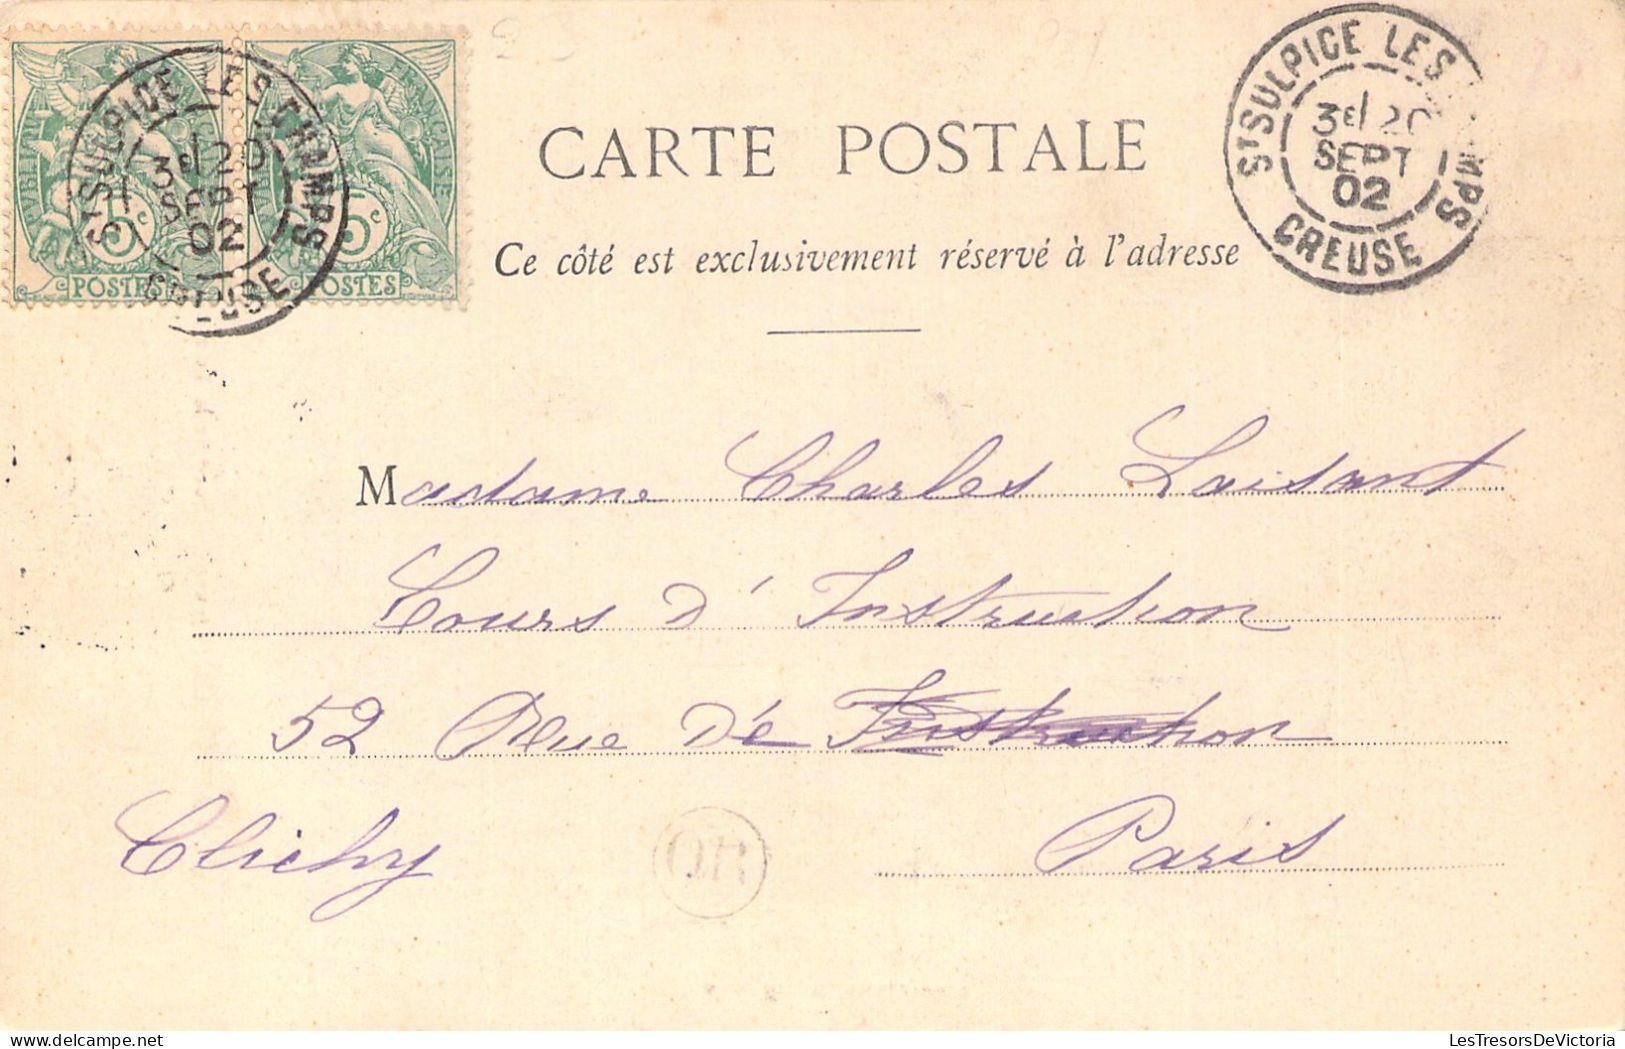 RÉPUBLIQUE FRANÇAISE
5c
POSTES
5c
POSTES
ST SULPICE LES CHAMPS
3E 20
SEPT
02
CREUSE
CARTE POSTALE
Ce côté est exclusivement réservé à l'adresse
ST SULPICE LES MPS
3E 20
SEPT
02
CREUSE
Madame Charles Laisant
Cours d'Instruction
52 Rue De Instruction
Clichy Paris
OR
LesTresorsDeVictoria